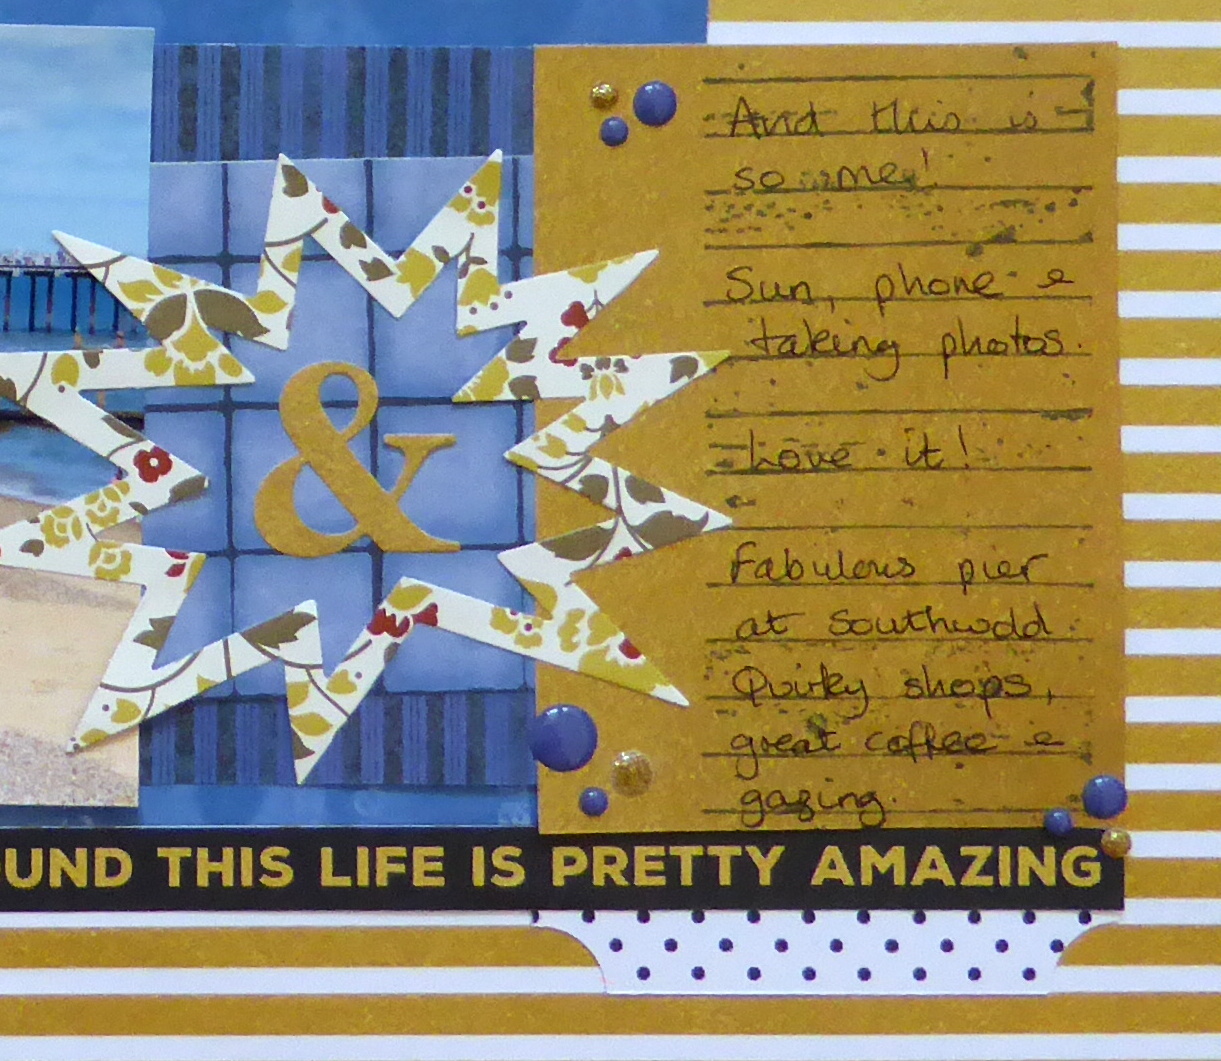 And this is
so me!
Sun, phone &
taking photos.
Love it!
Fabulous pier
at Southwold.
Quirky shops,
great coffee &
gazing.
&
UND THIS LIFE IS PRETTY AMAZING